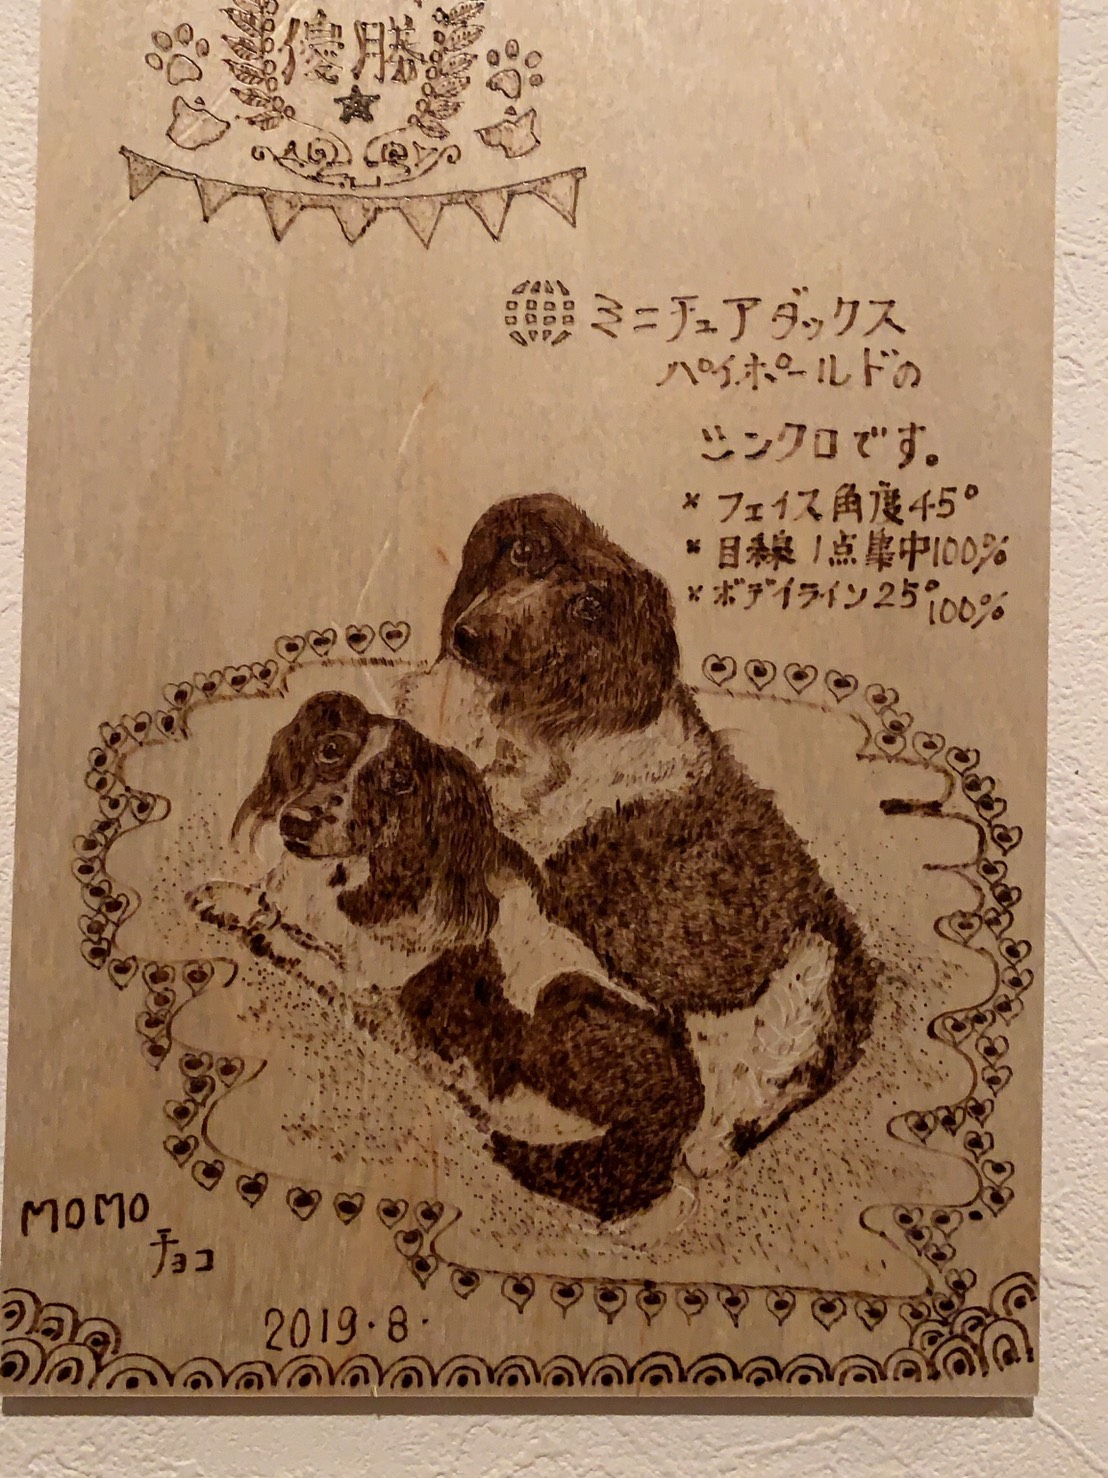 優勝
ミニチュアダックス
パイボールドの
シンクロです。
× フェイス角度45°
× 目線1点集中100%
× ボディライン25° 100%
MOMO
チョコ
2019・8・